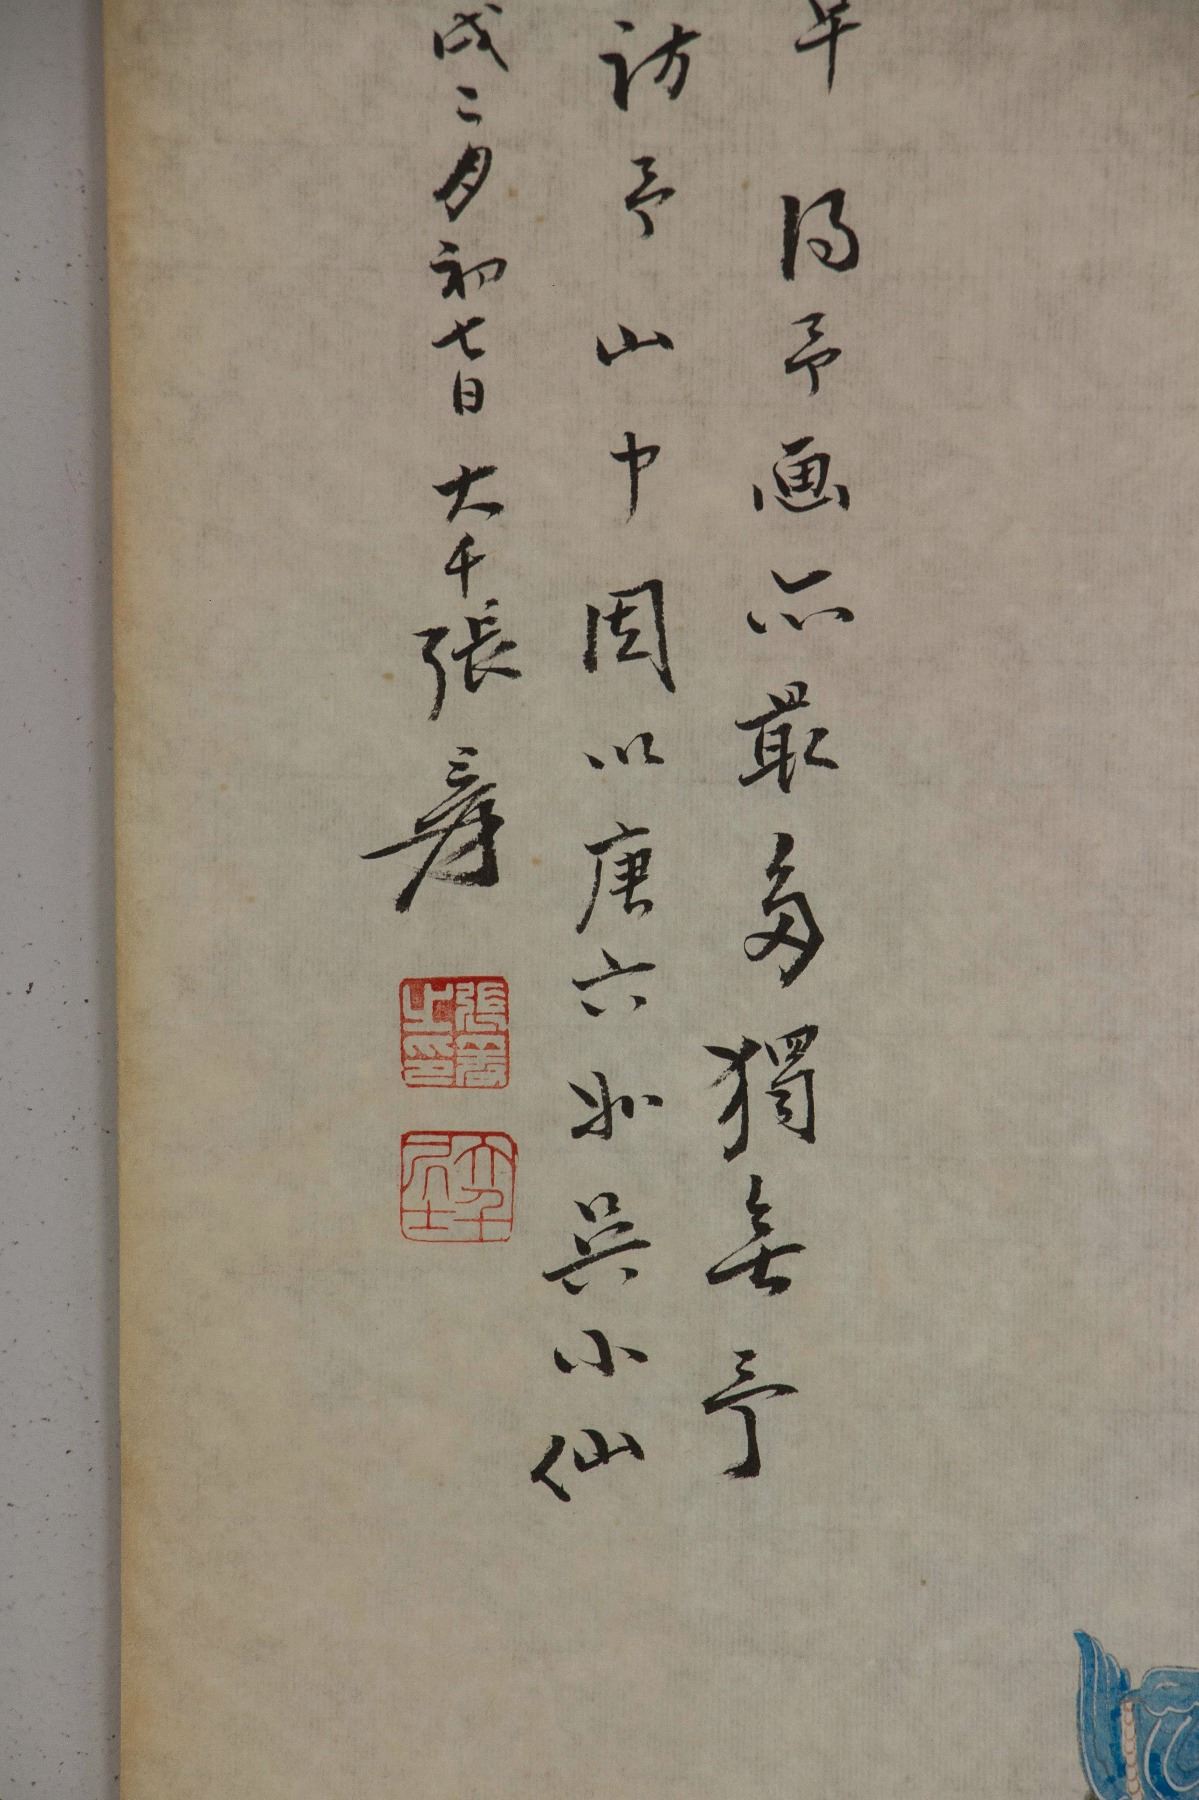 年得予画亦最多獨無予
訪予山中因以唐六如吳小仙
戌二月初七日大千張爰
張爰之印
大千居士